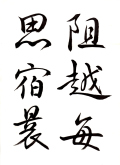 阻越每
思宿曩